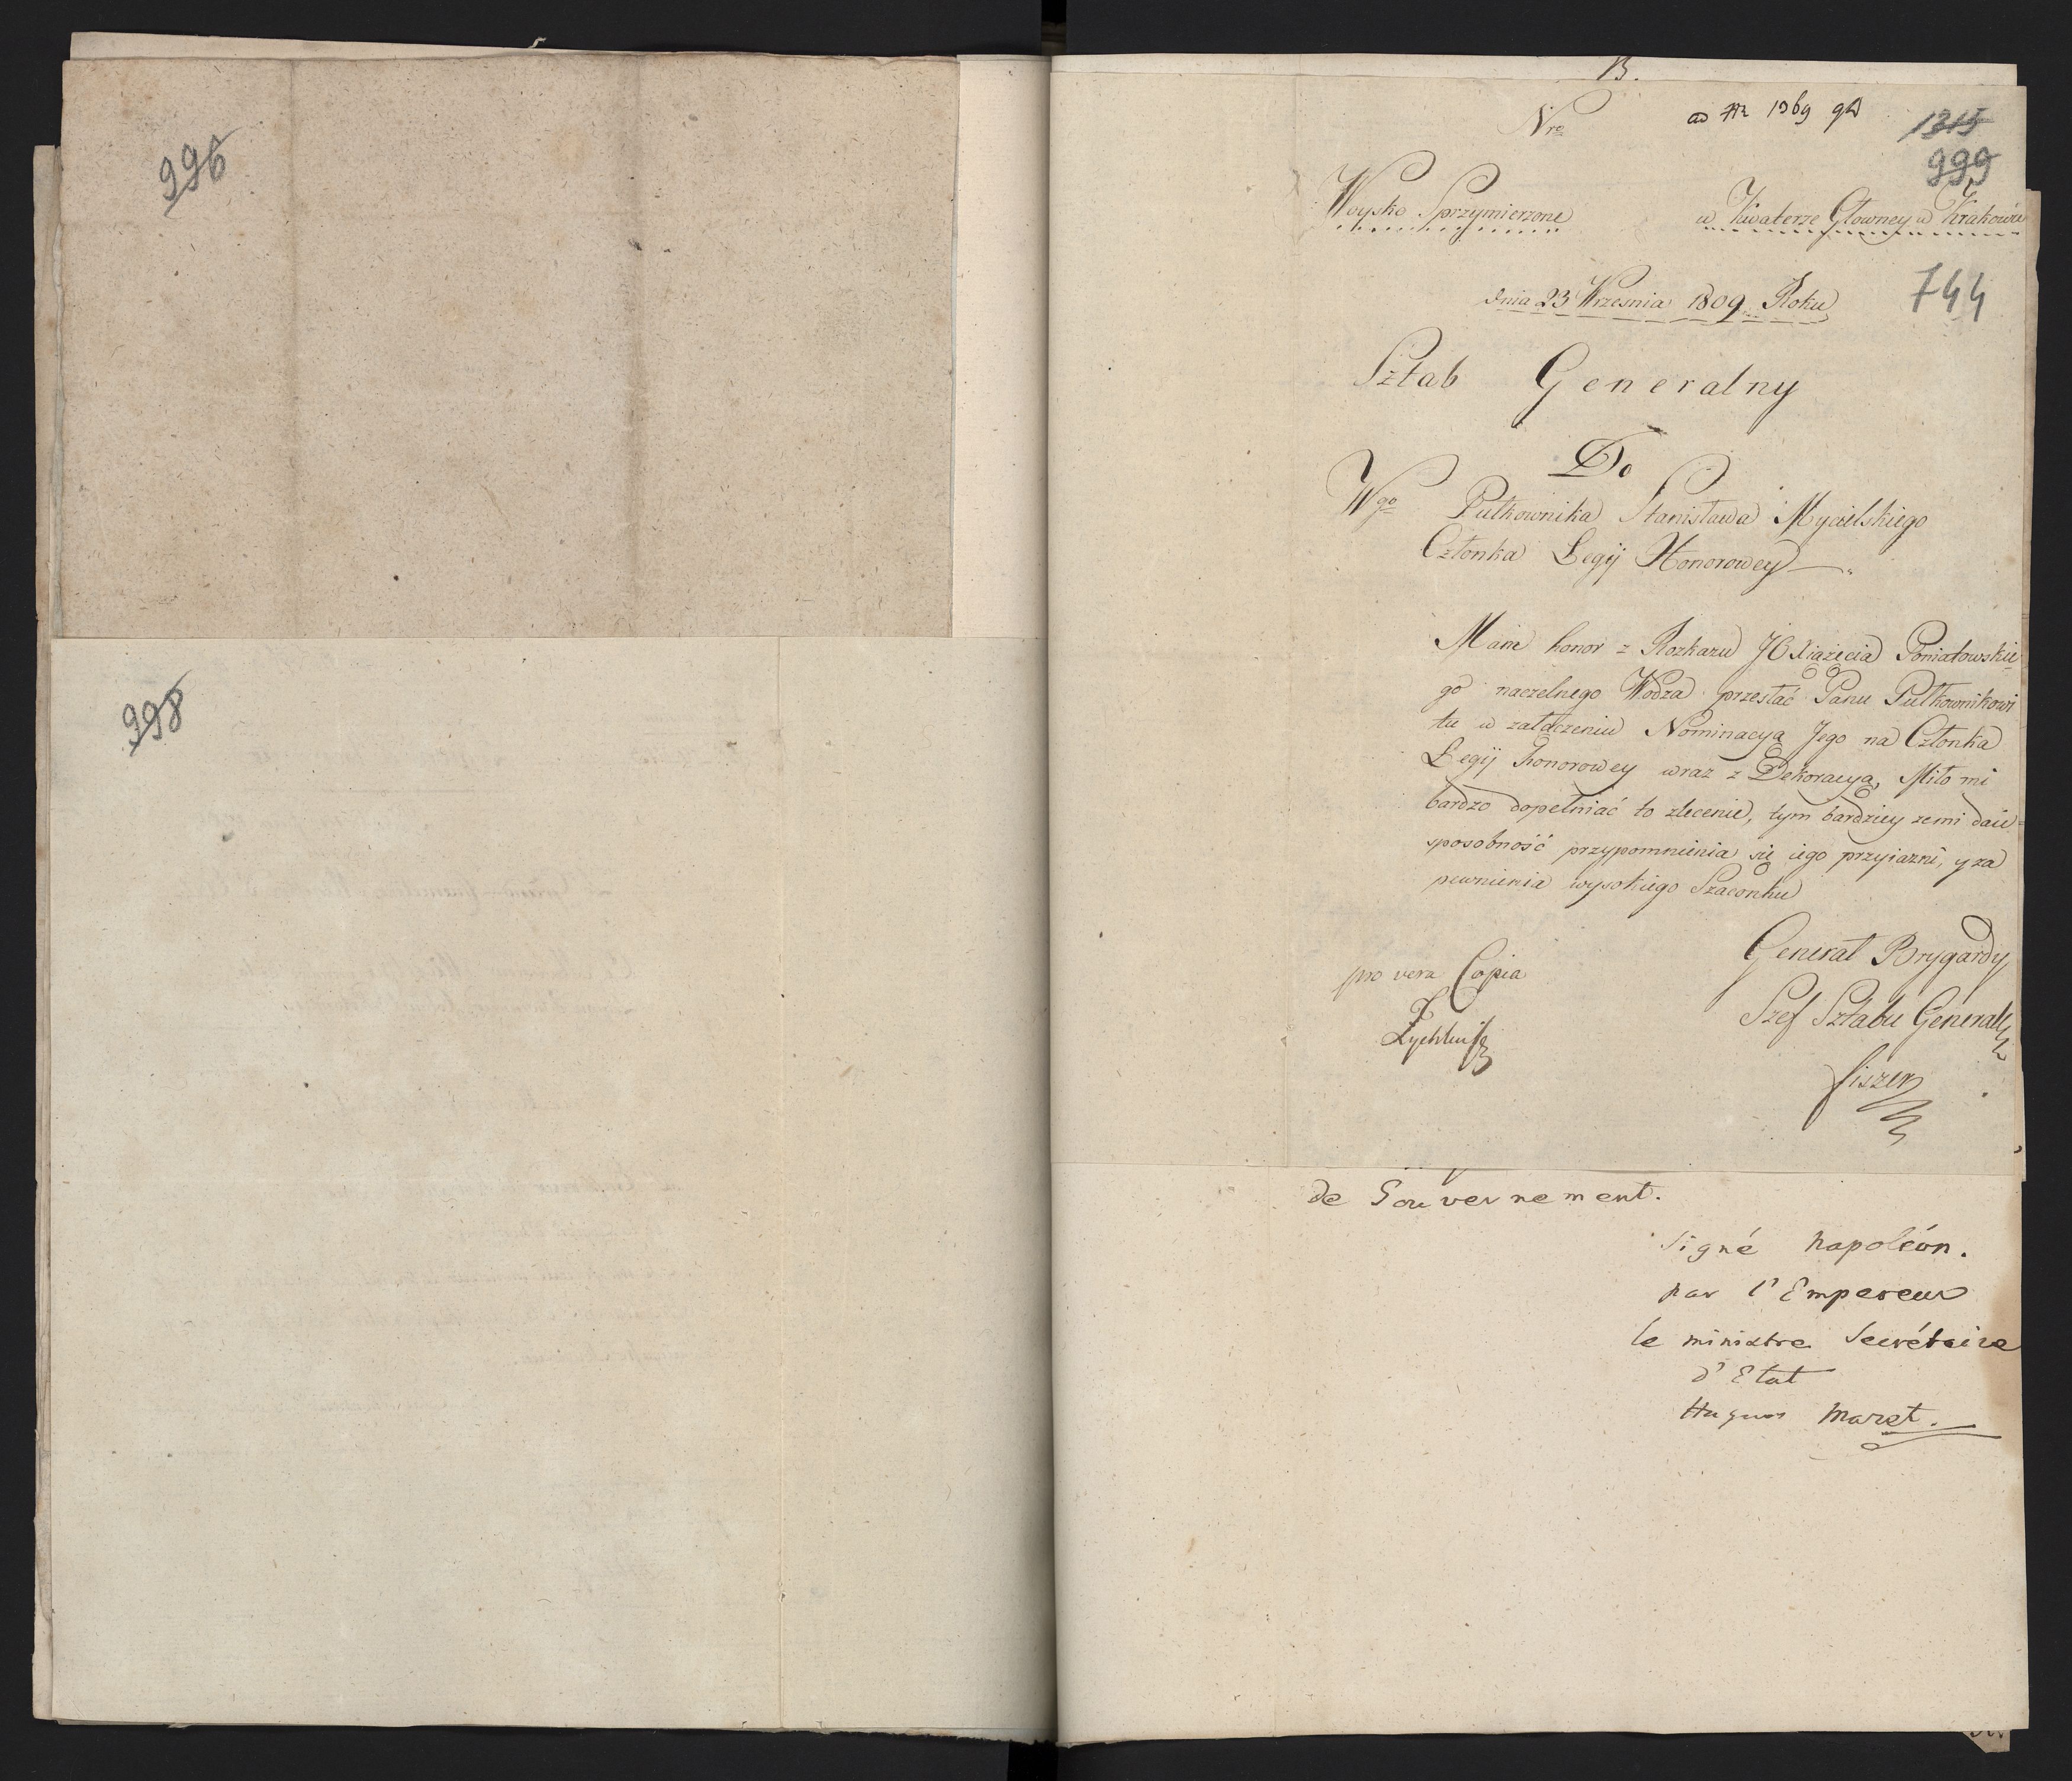 996
998
B.
Nro
ad Nr 1369 g d
1315
999
Woysko Sprzymierzone
w Kwaterze Głowney w Krakowie
dnia 23 Wrzesnia 1809 Roku
744
Sztab Generalny
Do
Wgo Pułkownika Stanisława Mycielskiego
Członka Legij Honorowey
Mam honor z Rozkazu JO Xiążęcia Poniatowskie
go naczelnego Wodza przesłać Panu Pułkownikowi
tu w załączeniu Nominacyą Jego na Członka
Legij Honorowey wraz z Dekoracyą, Miło mi
bardzo dopełniać to zlecenie, tym bardziey ze mi daie
sposobność przypomnienia się iego przyiazni, y za
pewnienia wysokiego Szacunku
Generał Brygardy
Szef Sztabu Generall
Fiszer
pro vera Copia
de Gouvernement.
signé Napoléon.
par l'Empereur
le ministre Secrétaire
d'Etat
Hugues Maret.